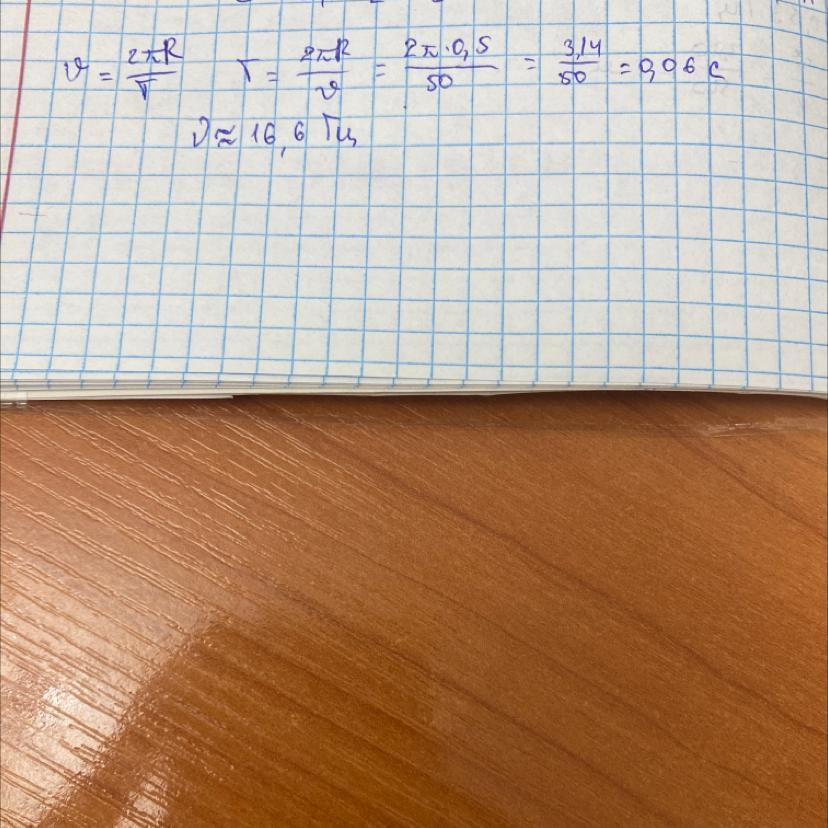 υ = 2πR/T T = 2πR/υ = 2π·0,5/50 = 3,14/50 = 0,06 с
ν ≈ 16,6 Гц